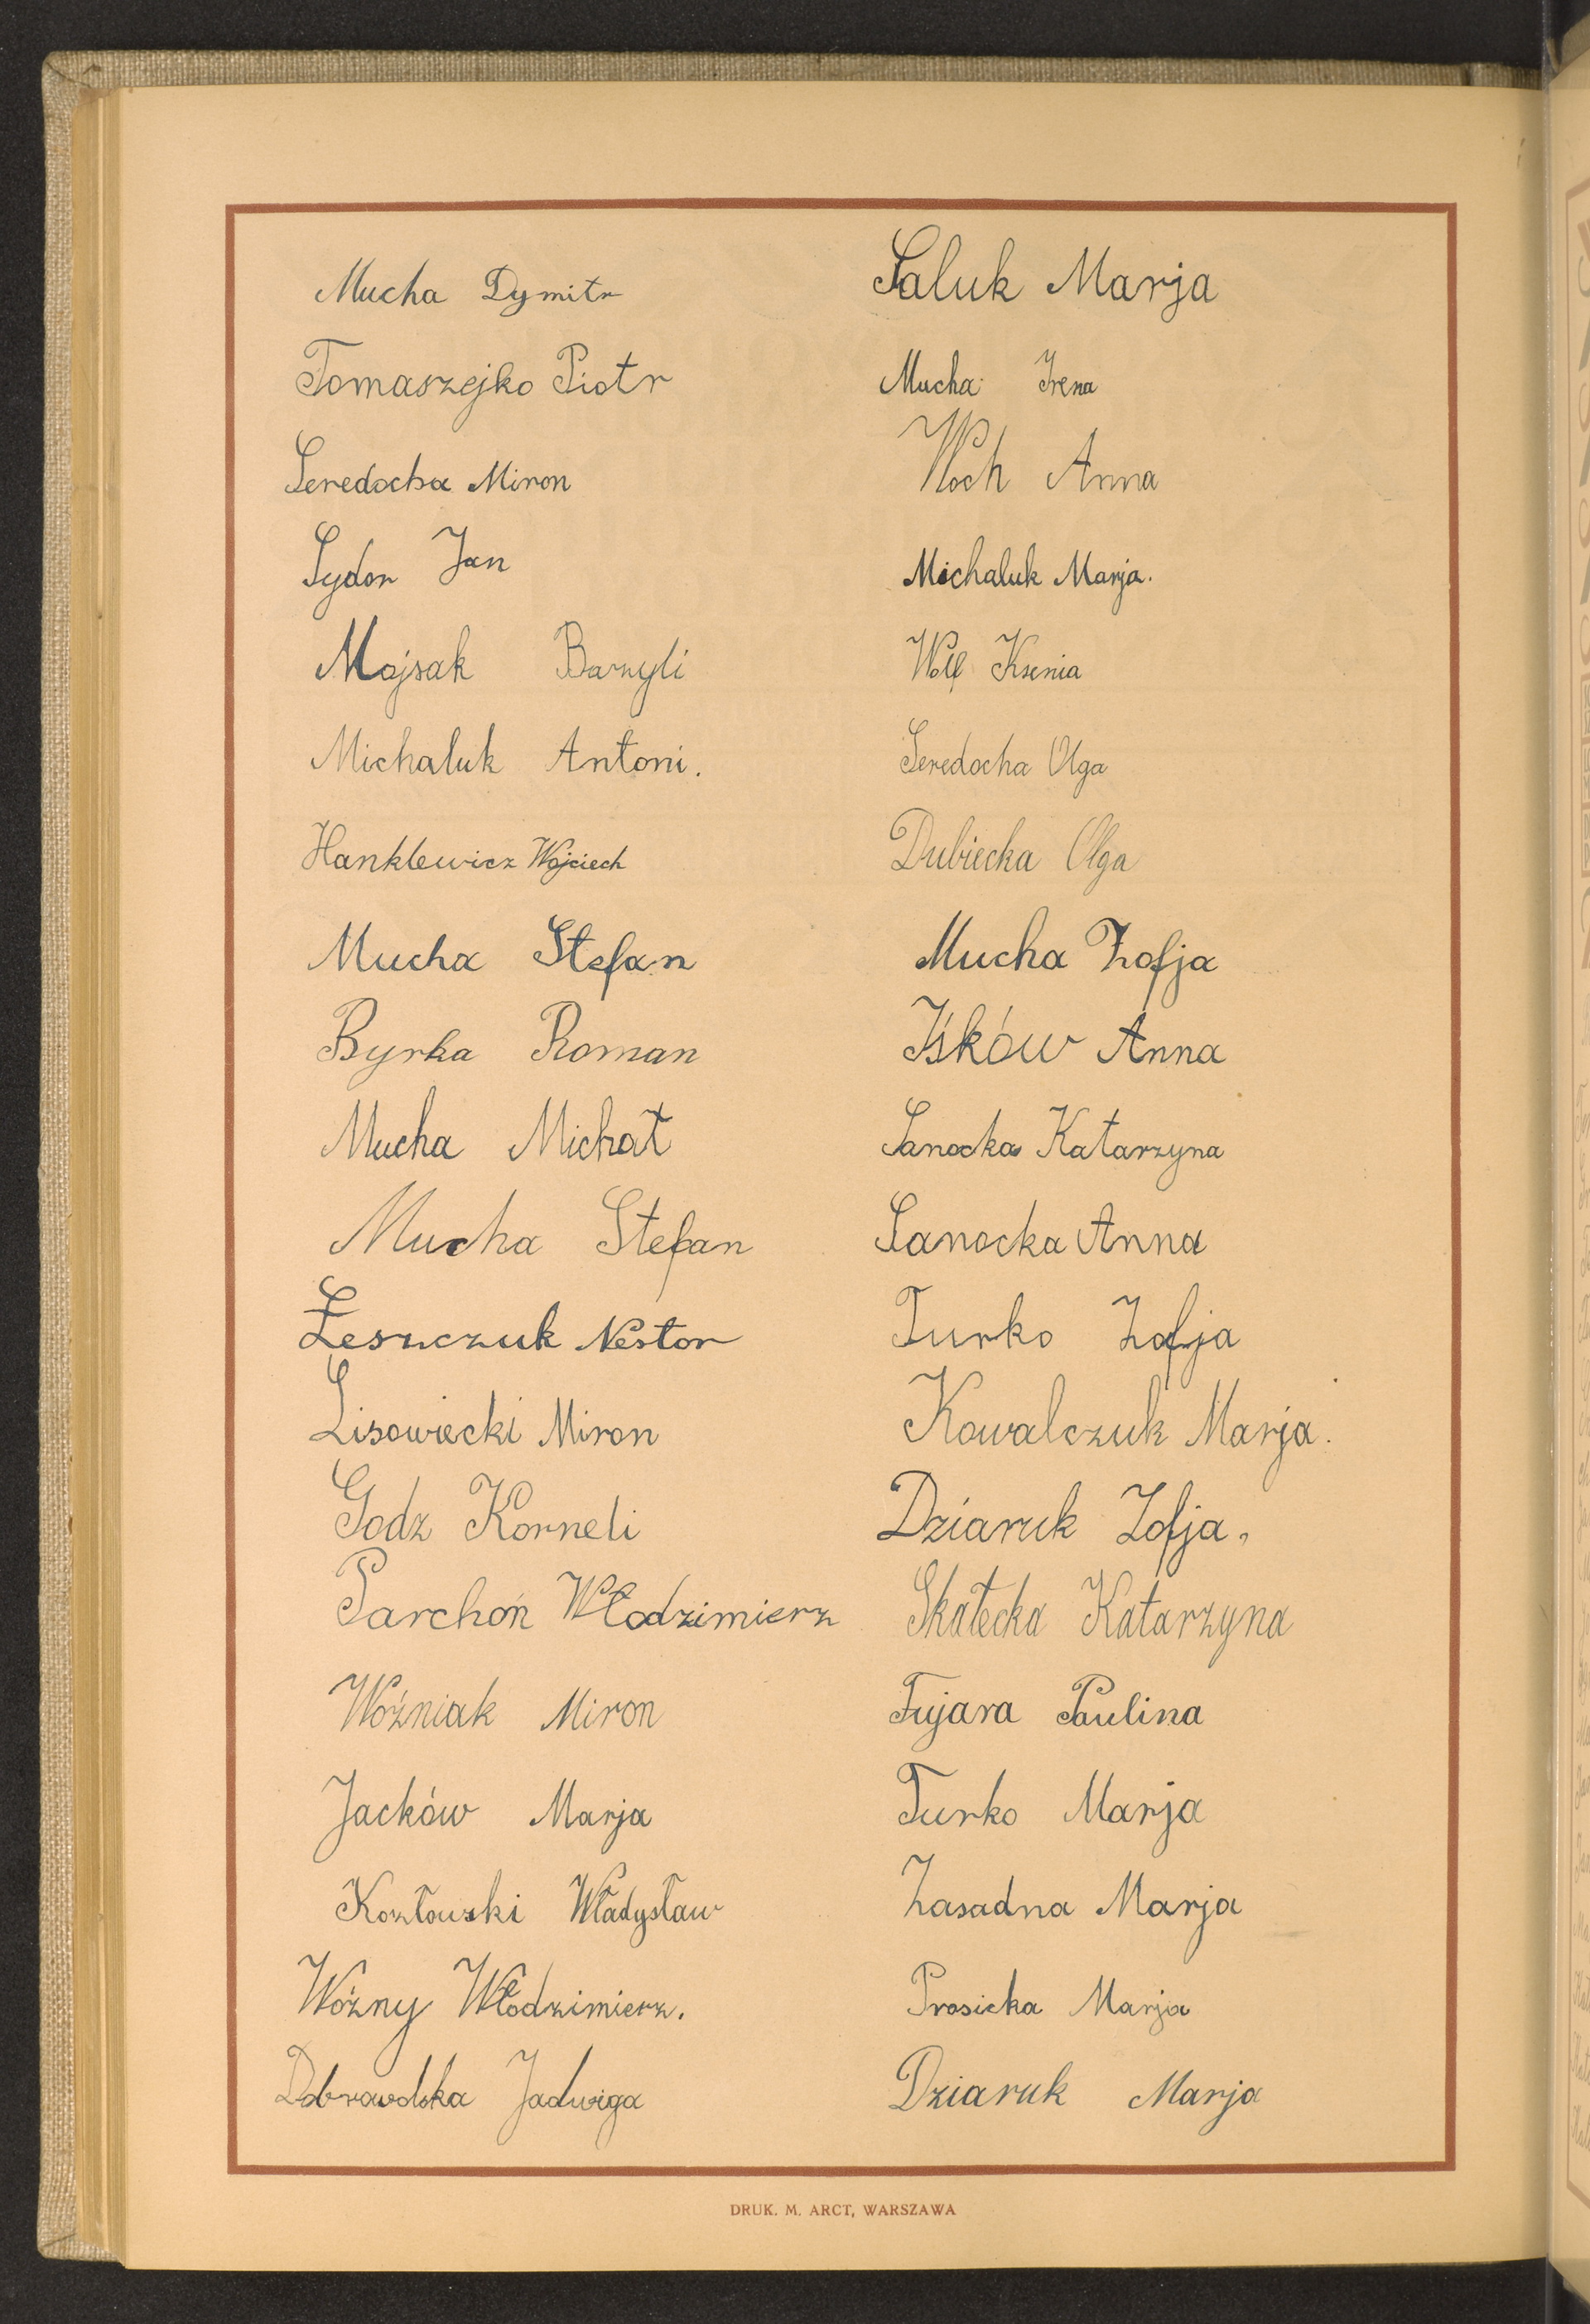 Mucha Dymitr
Tomaszejko Piotr
Seredocha Miron
Sydor Jan
Mojsak Bazyli
Michaluk Antoni.
Hanklewicz Wojciech
Mucha Stefan
Byrka Roman
Mucha Michał
Mucha Stefan
Łeszczuk Nestor
Lisowiecki Miron
Godz Korneli
Parchoń Włodzimierz
Woźniak Miron
Jacków Marja
Kozłowski Władysław
Woźny Włodzimierz.
Jadwiga
Saluk Marja
Mucha Irena
Woch Anna
Michaluk Marja.
Wolf Ksenia
Seredocha Olga
Dubiecka Olga
Mucha Zofja
Iśków Anna
Sanocka Katarzyna
Sanocka Anna
Turko Zofja
Kowalczuk Marja.
Dziaruk Zofja.
Skałecka Katarzyna
Fujara Paulina
Turko Marja
Zasadna Marja
Prosicka Marja
Dziaruk Marja
DRUK. M. ARCT, WARSZAWA